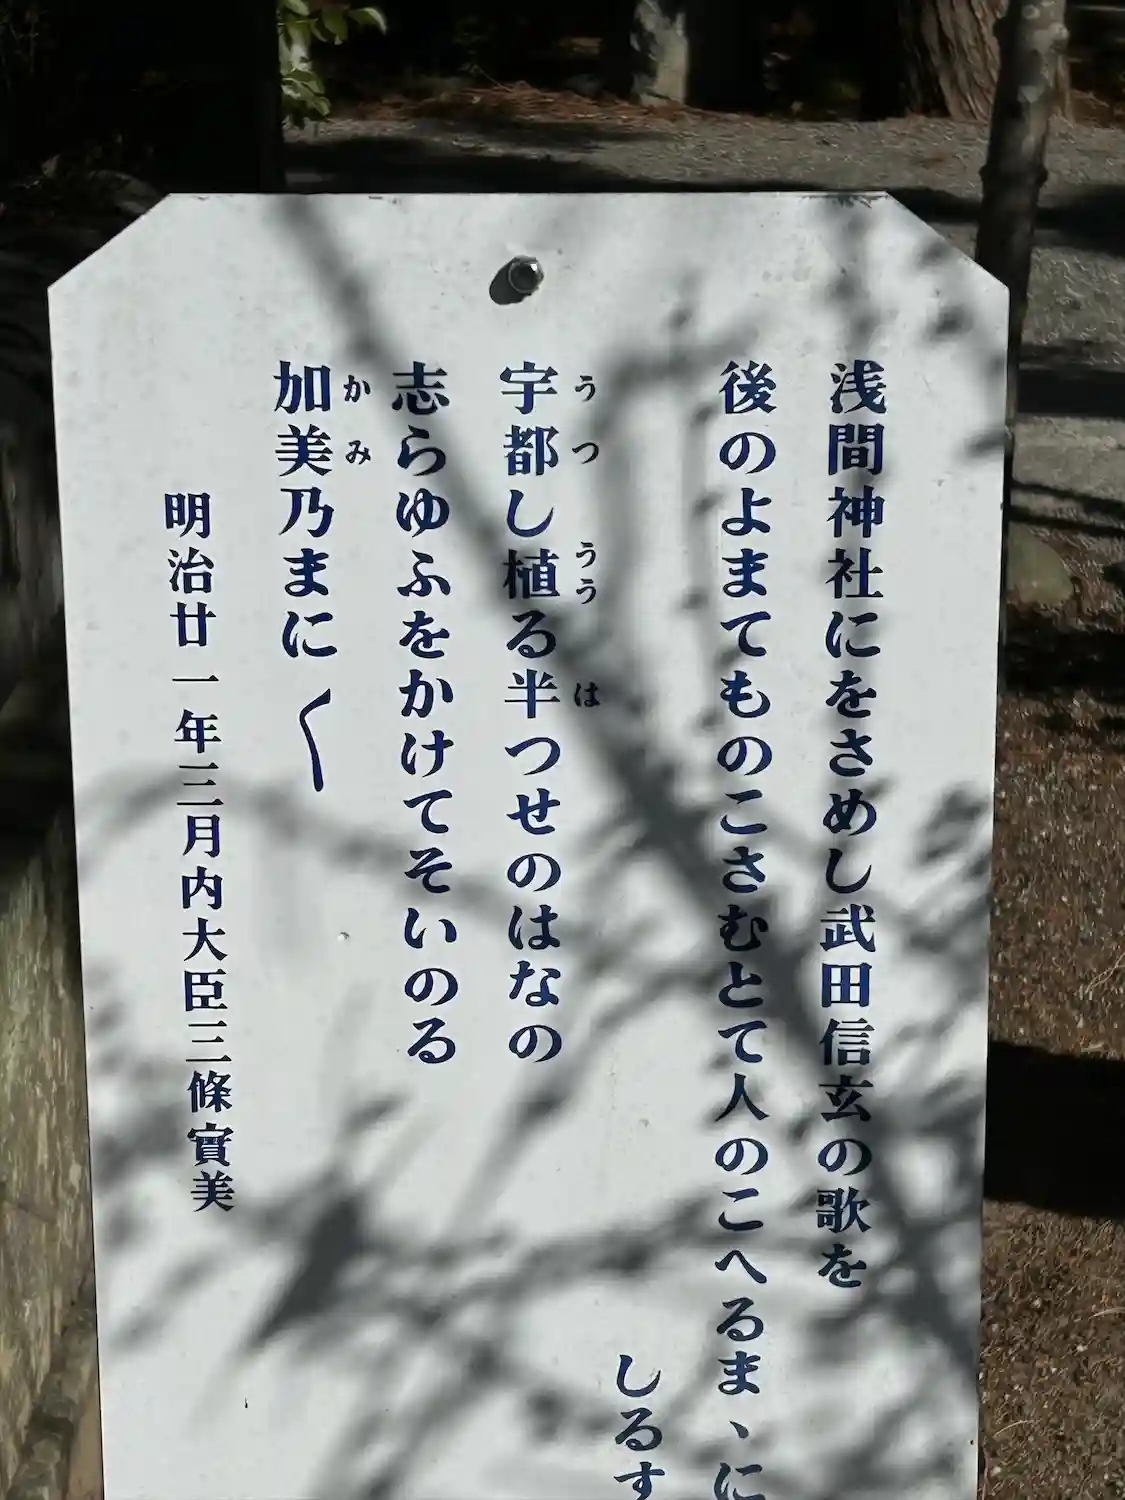 浅間神社にをさめし武田信玄の歌を
後のよまてものこさむとて人のこへるまゝに
しるす
宇都し植る半つせのはなの
志らゆふをかけてそいのる
加美乃まに〱
明治廿一年三月内大臣三條實美
うつ
うう
は
かみ